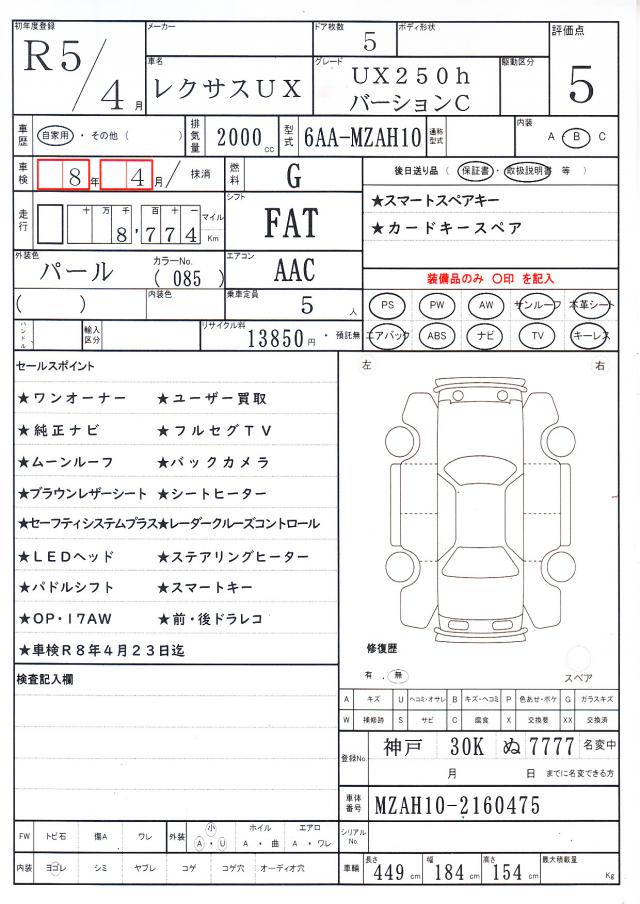 初年度登録 メーカー ドア枚数 ボディ形状 評価点
R5/4月 5 5
車名 グレード 駆動区分
レクサスUX UX250h
バージョンC
車歴 自家用・その他( ) 排気量 2000cc 型式 6AA-MZAH10 通称型式 内装 A・B C
車検 8年 4月/ 抹消 燃料 G 後日送り品 (保証書・取扱説明書 等)
走行 十 万 千 百 十 一 マイル シフト ★スマートスペアキー
8,774 Km FAT ★カードキースペア
外装色 カラーNo. エアコン
パール (085) AAC 装備品のみ 〇印 を記入
( ) 内装色 乗車定員 5人 PS PW AW サンルーフ 本革シート
ハンドル 輸入区分 リサイクル料 13850円・預託無 エアバック ABS ナビ TV キーレス
セールスポイント 左 右
★ワンオーナー ★ユーザー買取
★純正ナビ ★フルセグTV
★ムーンルーフ ★バックカメラ
★ブラウンレザーシート ★シートヒーター
★セーフティシステムプラス★レーダークルーズコントロール
★LEDヘッド ★ステアリングヒーター
★パドルシフト ★スマートキー
★OP・17AW ★前・後ドラレコ
★車検R8年4月23日迄 修復歴
検査記入欄 有.無 スペア
A キズ U ヘコミ・オサレ B キズ・ヘコミ P 色あせ・ボケ G ガラスキズ
W 補修跡 S サビ C 腐食 X 交換要 XX 交換済
登録No. 神戸 30K ぬ 7777 名変中
月 日 までに名変できる方
車体番号 MZAH10-2160475
FW トビ石 傷A ワレ 外装 小 ホイル エアロ シリアルNo.
A・U A・曲 A・ワレ
内装 ヨゴレ シミ ヤブレ コゲ コゲ穴 オーディオ穴 車輛 長さ 449cm 幅 184cm 高さ 154cm 最大積載量 Kg